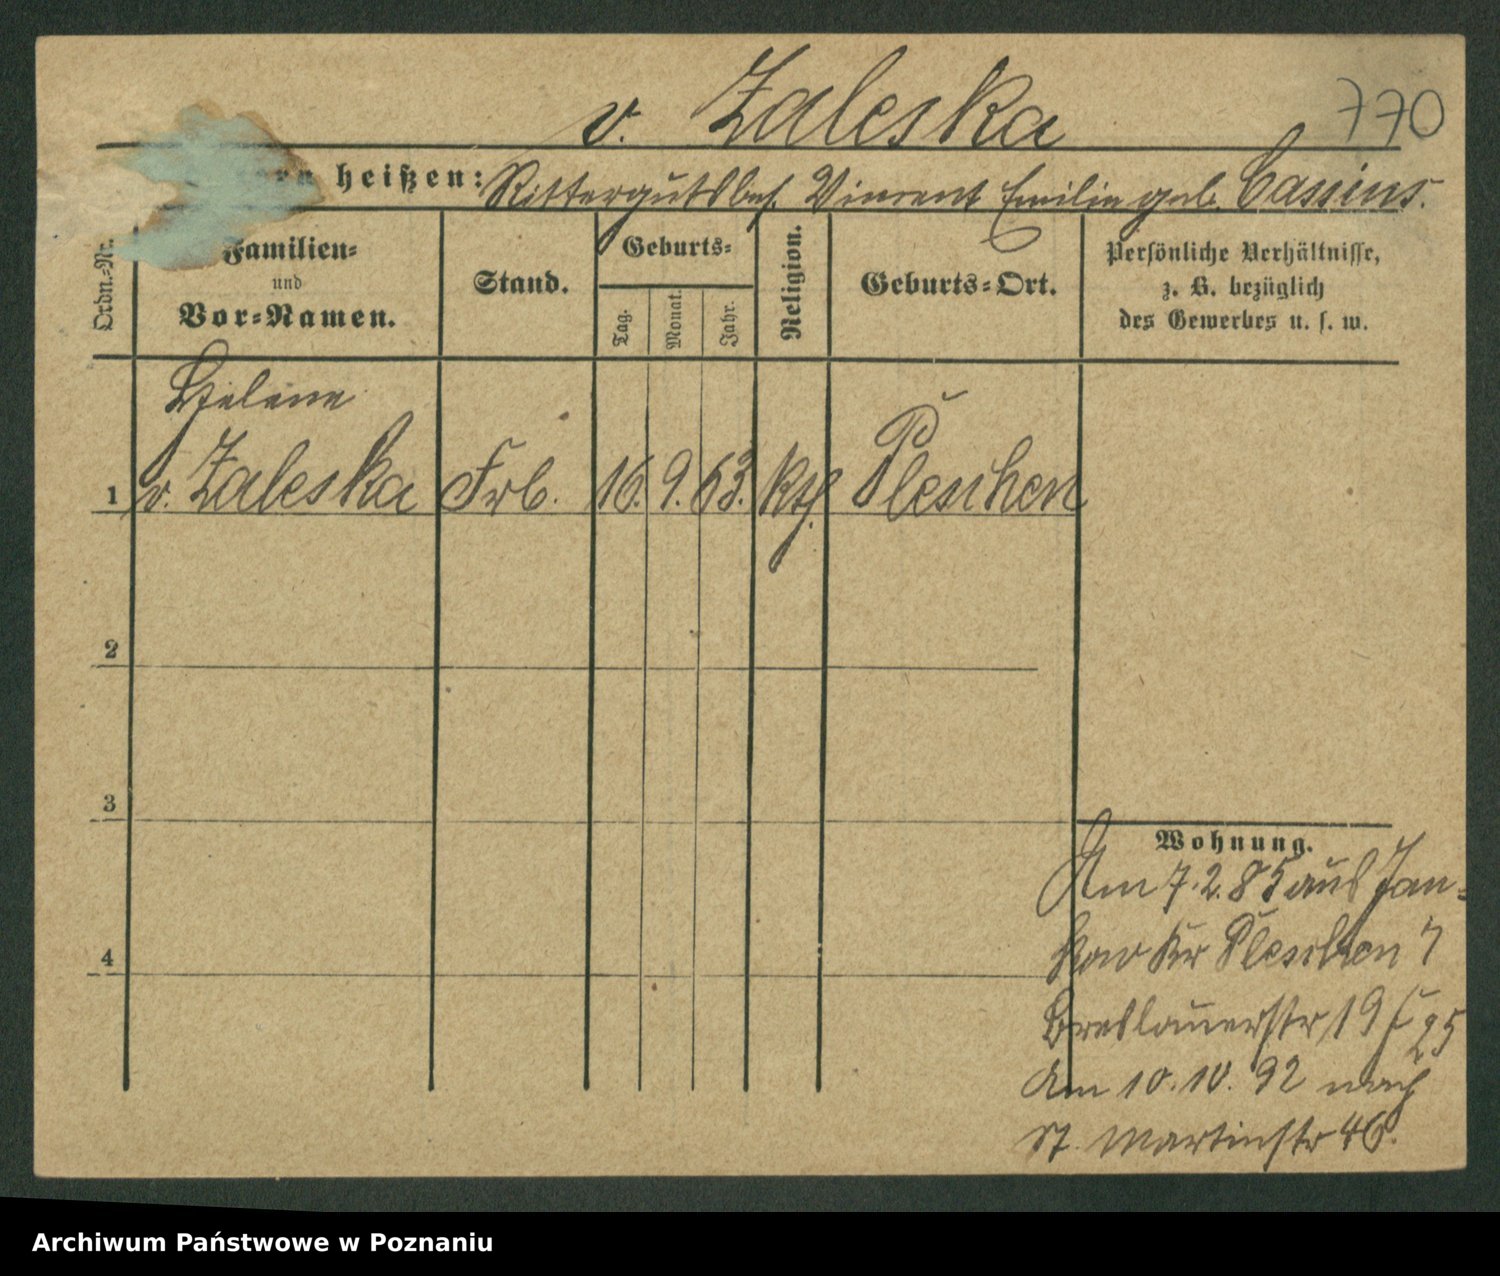 v. Zaleska
770
heißen: Rittergutsbes. Vincent Emilie geb. Cassius.
Ordn.-Nr.
Familien-
und
Vor-Namen.
Stand.
Geburts-
Tag.
Monat.
Jahr.
Religion.
Geburts-Ort.
Persönliche Verhältnisse,
z. B. bezüglich
des Gewerbes u. s. w.
Helene
1 v. Zaleska Frl. 16. 9. 63. kth. Pleschen
2
3
4
Wohnung.
Am 7.2.85 aus Jan-
kow Kr Pleschen
Breslauerstr 19
Am 10.10.92 nach
St. Martinstr 46.
Archiwum Państwowe w Poznaniu